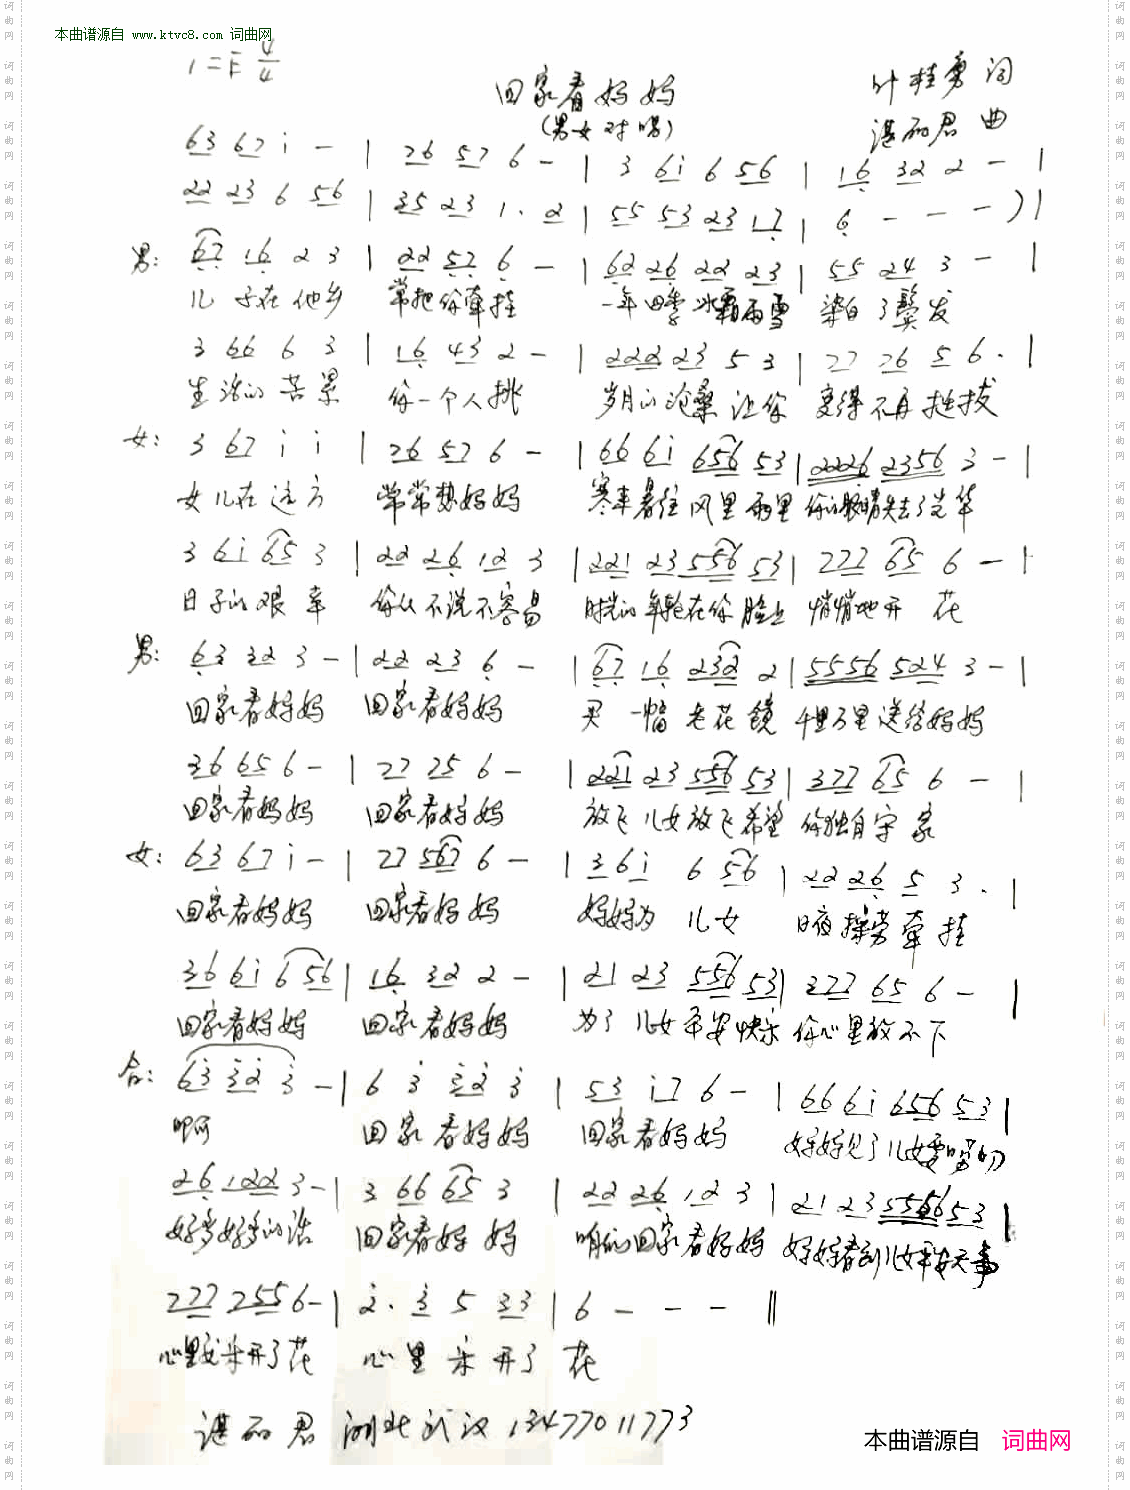 本曲谱源自 www.ktvc8.com 词曲网
1=F 4/4
回家看妈妈
(男女对唱)
叶桂勇 词
谌丽君 曲
63 67 i - | 76 57 6 - | 3 6i 6 56 | 16 32 2 - |
22 23 6 56 | 35 23 1. 2 | 55 53 23 17 | 6 - - - ) |
男: 67 16 2 3 | 22 57 6 - | 62 26 22 23 | 55 24 3 - |
儿子在他乡 常把你牵挂 一年四季冰霜雨雪 染白了鬓发
3 66 6 3 | 16 43 2 - | 222 23 5 3 | 77 76 5 6. |
生活的苦累 你一个人挑 岁月的沧桑让你 变得不再挺拔
女: 3 67 i i | 76 57 6 - | 66 6i 656 53 | 2226 2356 3 - |
女儿在远方 常常想妈妈 寒来暑往风里雨里 你的眼睛失去了光华
3 6i 65 3 | 22 26 12 3 | 221 23 556 53 | 777 65 6 - |
日子的艰辛 你从不说不容易 时光的年轮在你脸上 悄悄地开花
男: 63 32 3 - | 22 23 6 - | 67 16 232 2 | 5556 524 3 - |
回家看妈妈 回家看妈妈 买一幅老花镜 千里万里送给妈妈
36 65 6 - | 77 75 6 - | 221 23 556 53 | 377 65 6 - |
回家看妈妈 回家看妈妈 放飞儿女放飞希望 你独自守家
女: 63 67 i - | 77 567 6 - | 36i 6 56 | 22 26 5 3. |
回家看妈妈 回家看妈妈 妈妈为儿女 日夜操劳牵挂
36 6i 6 56 | 16 32 2 - | 21 23 556 53 | 377 65 6 - |
回家看妈妈 回家看妈妈 为了儿女平安快乐 你心里放不下
合: 63 32 3 - | 6 3 32 3 | 53 i7 6 - | 66 6i 656 53 |
啊 回家看妈妈 回家看妈妈 妈妈见了儿女要唠叨
26 122 3 - | 3 66 65 3 | 22 26 12 3 | 21 23 5556 53 |
好多好多的话 回家看妈妈 咱们回家看妈妈 妈妈看到儿女平安无事
777 755 6 - | 2. 3 5 33 | 6 - - - ||
心里乐开了花 心里乐开了花
谌丽君 湖北武汉 13477011773
本曲谱源自 词曲网